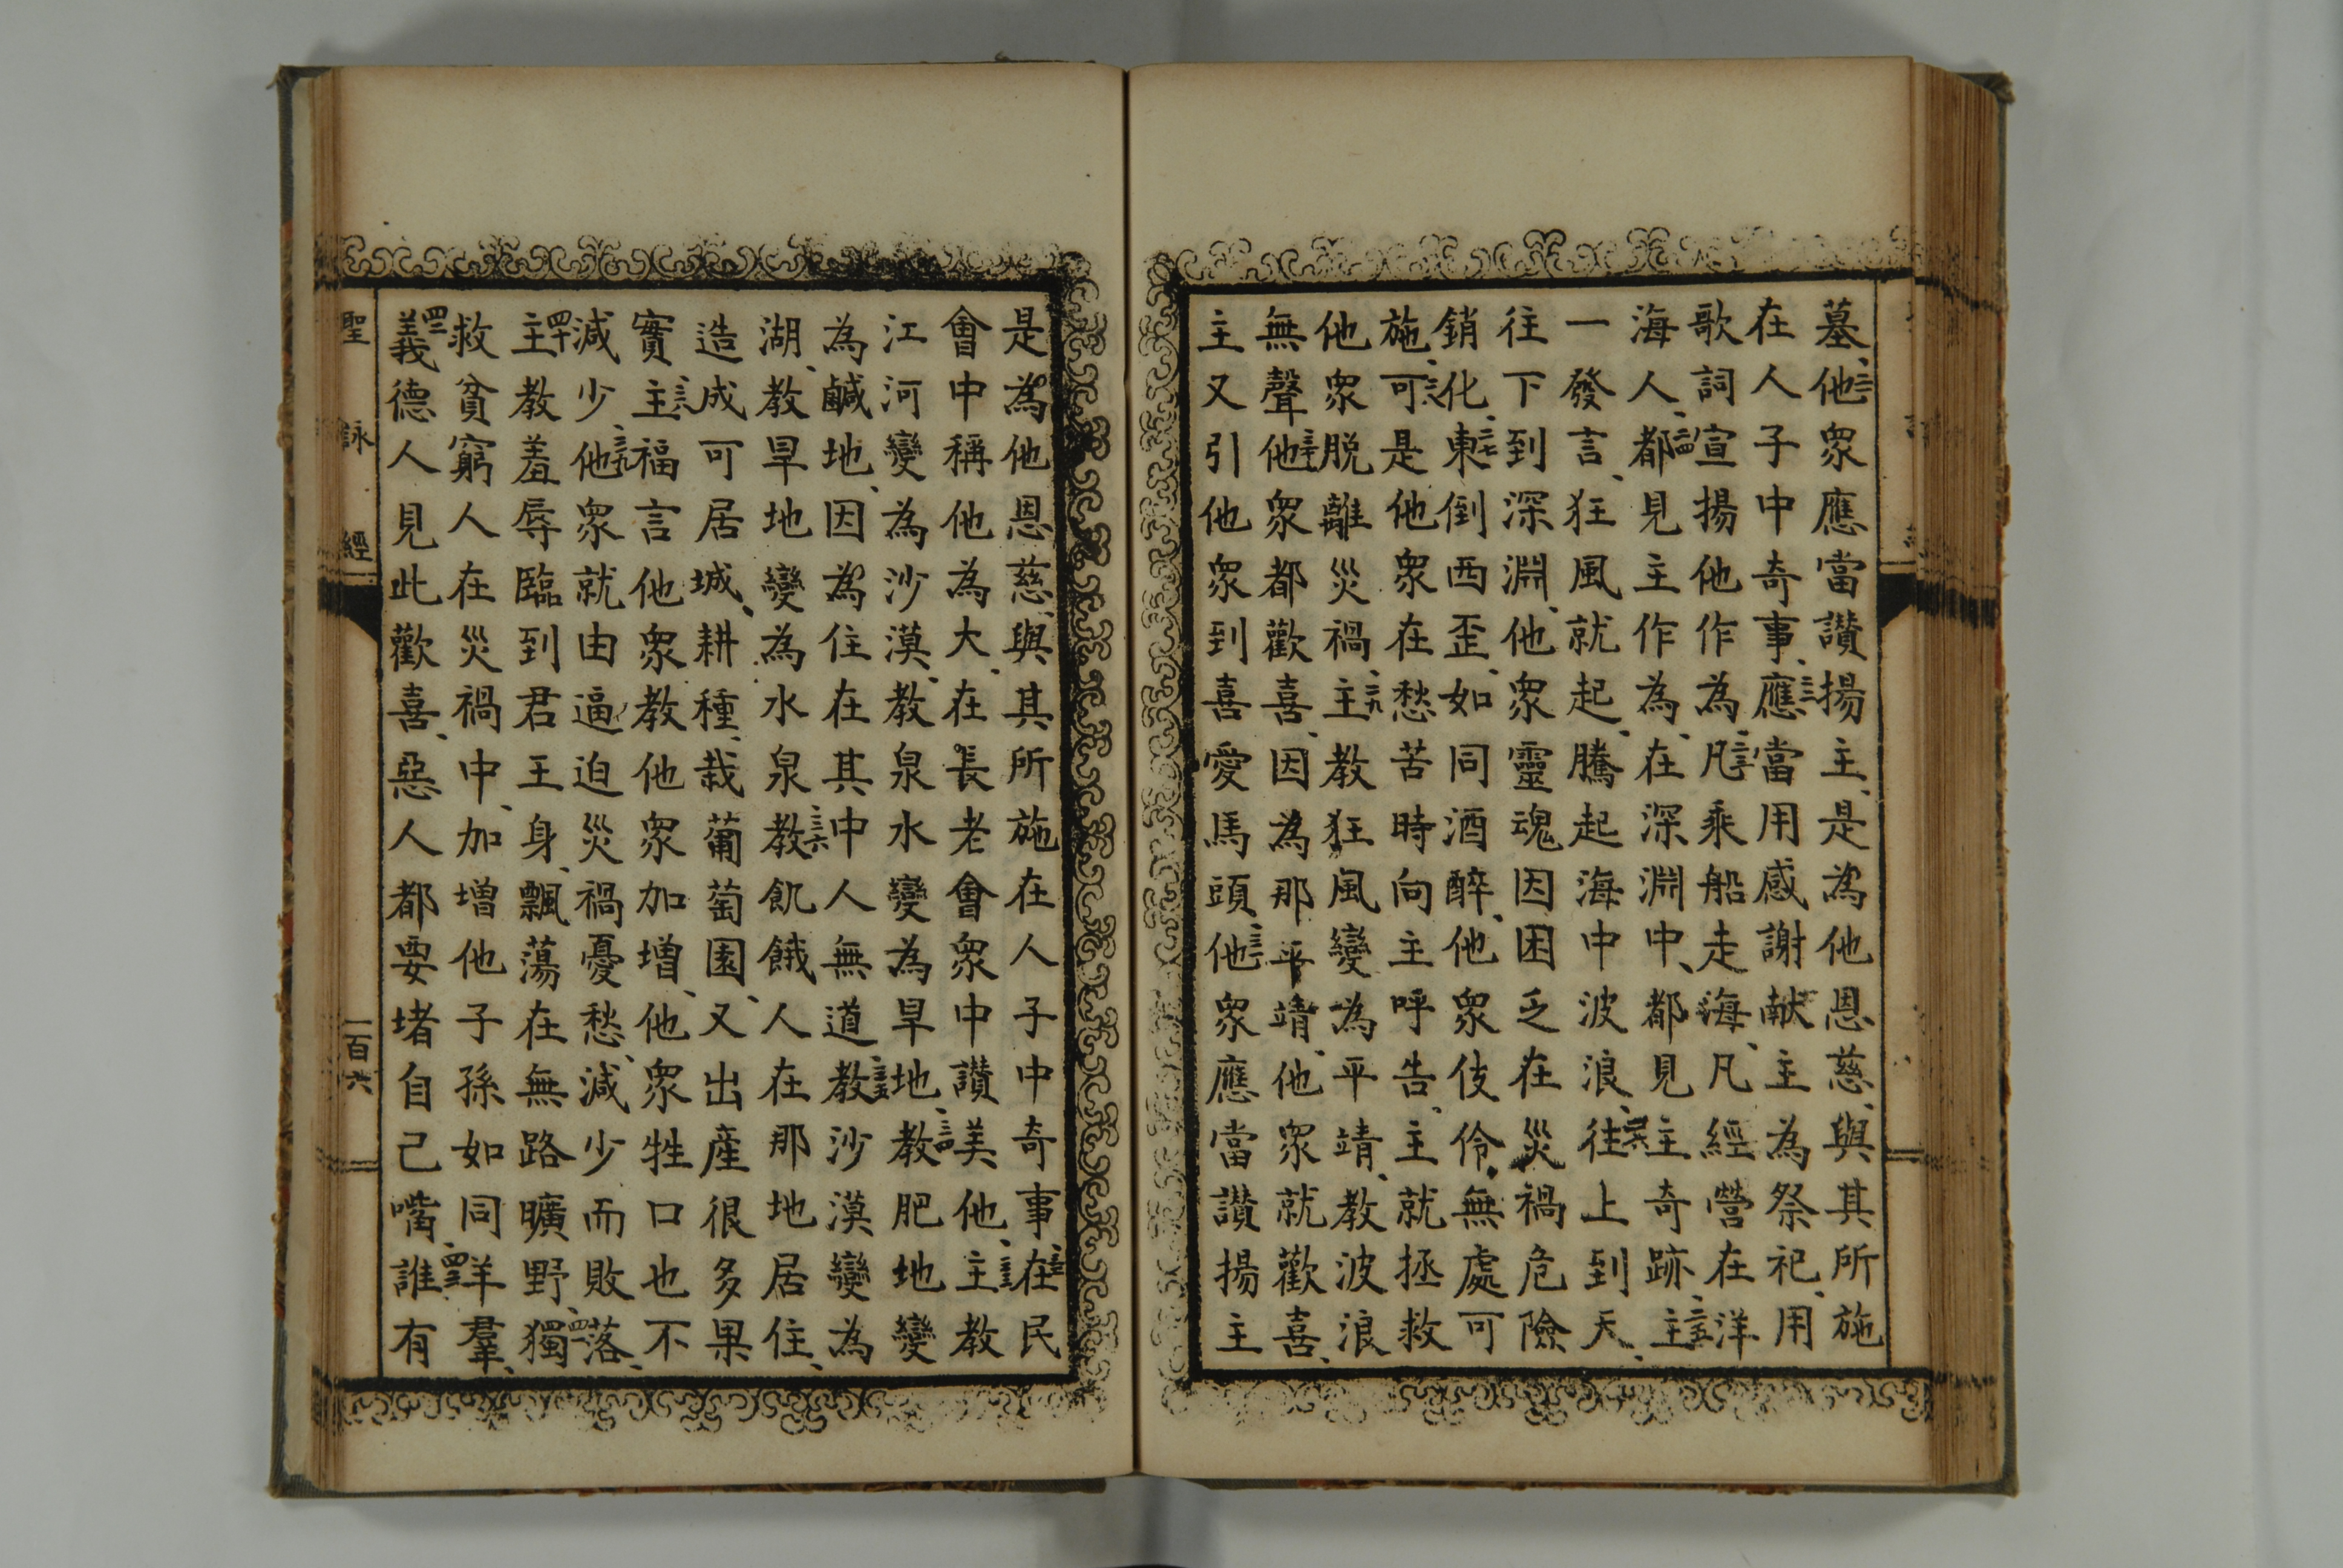 墓、二一他衆應當讃揚主、是為他恩慈、與其所施
在人子中奇事、二二應當用感謝献主為祭祀、用
歌詞宣揚他作為、二三凡乘船走海、凡經營在洋
海人、二四都見主作為、在深淵中、都見主奇跡、二五主
一發言、狂風就起、騰起海中波浪、二六往上到天、
往下到深淵、他衆靈魂因困乏在災禍危險
銷化、二七東倒西歪、如同酒醉、他衆伎伶、無處可
施、二八可是他衆在愁苦時向主呼告、主就拯救
他衆脱離災禍、二九主教狂風變為平靖、教波浪
無聲、三十他衆都歡喜、因為那平靖、他衆就歡喜、
主又引他衆到喜愛馬頭、三一他衆應當讃揚主
是為他恩慈、與其所施在人子中奇事、三二在民
會中稱他為大、在長老會衆中讃美他、三三主教
江河變為沙漠、教泉水變為旱地、三四教肥地變
為鹹地、因為住在其中人無道、三五教沙漠變為
湖、教旱地變為水泉、三六教飢餓人在那地居住、
造成可居城、三七耕種、栽葡萄園、又出産很多果
實、三八主福言他衆、教他衆加增、他衆牲口也不
減少、三九他衆就由逼迫災禍憂愁、減少而敗落、
四十主教羞辱臨到君王身、飄蕩在無路曠野、四一獨
救貧窮人在災禍中、加增他子孫如同羊羣、
四二義德人見此歡喜、惡人都要堵自己嘴、四三誰有
聖詠經
一百六